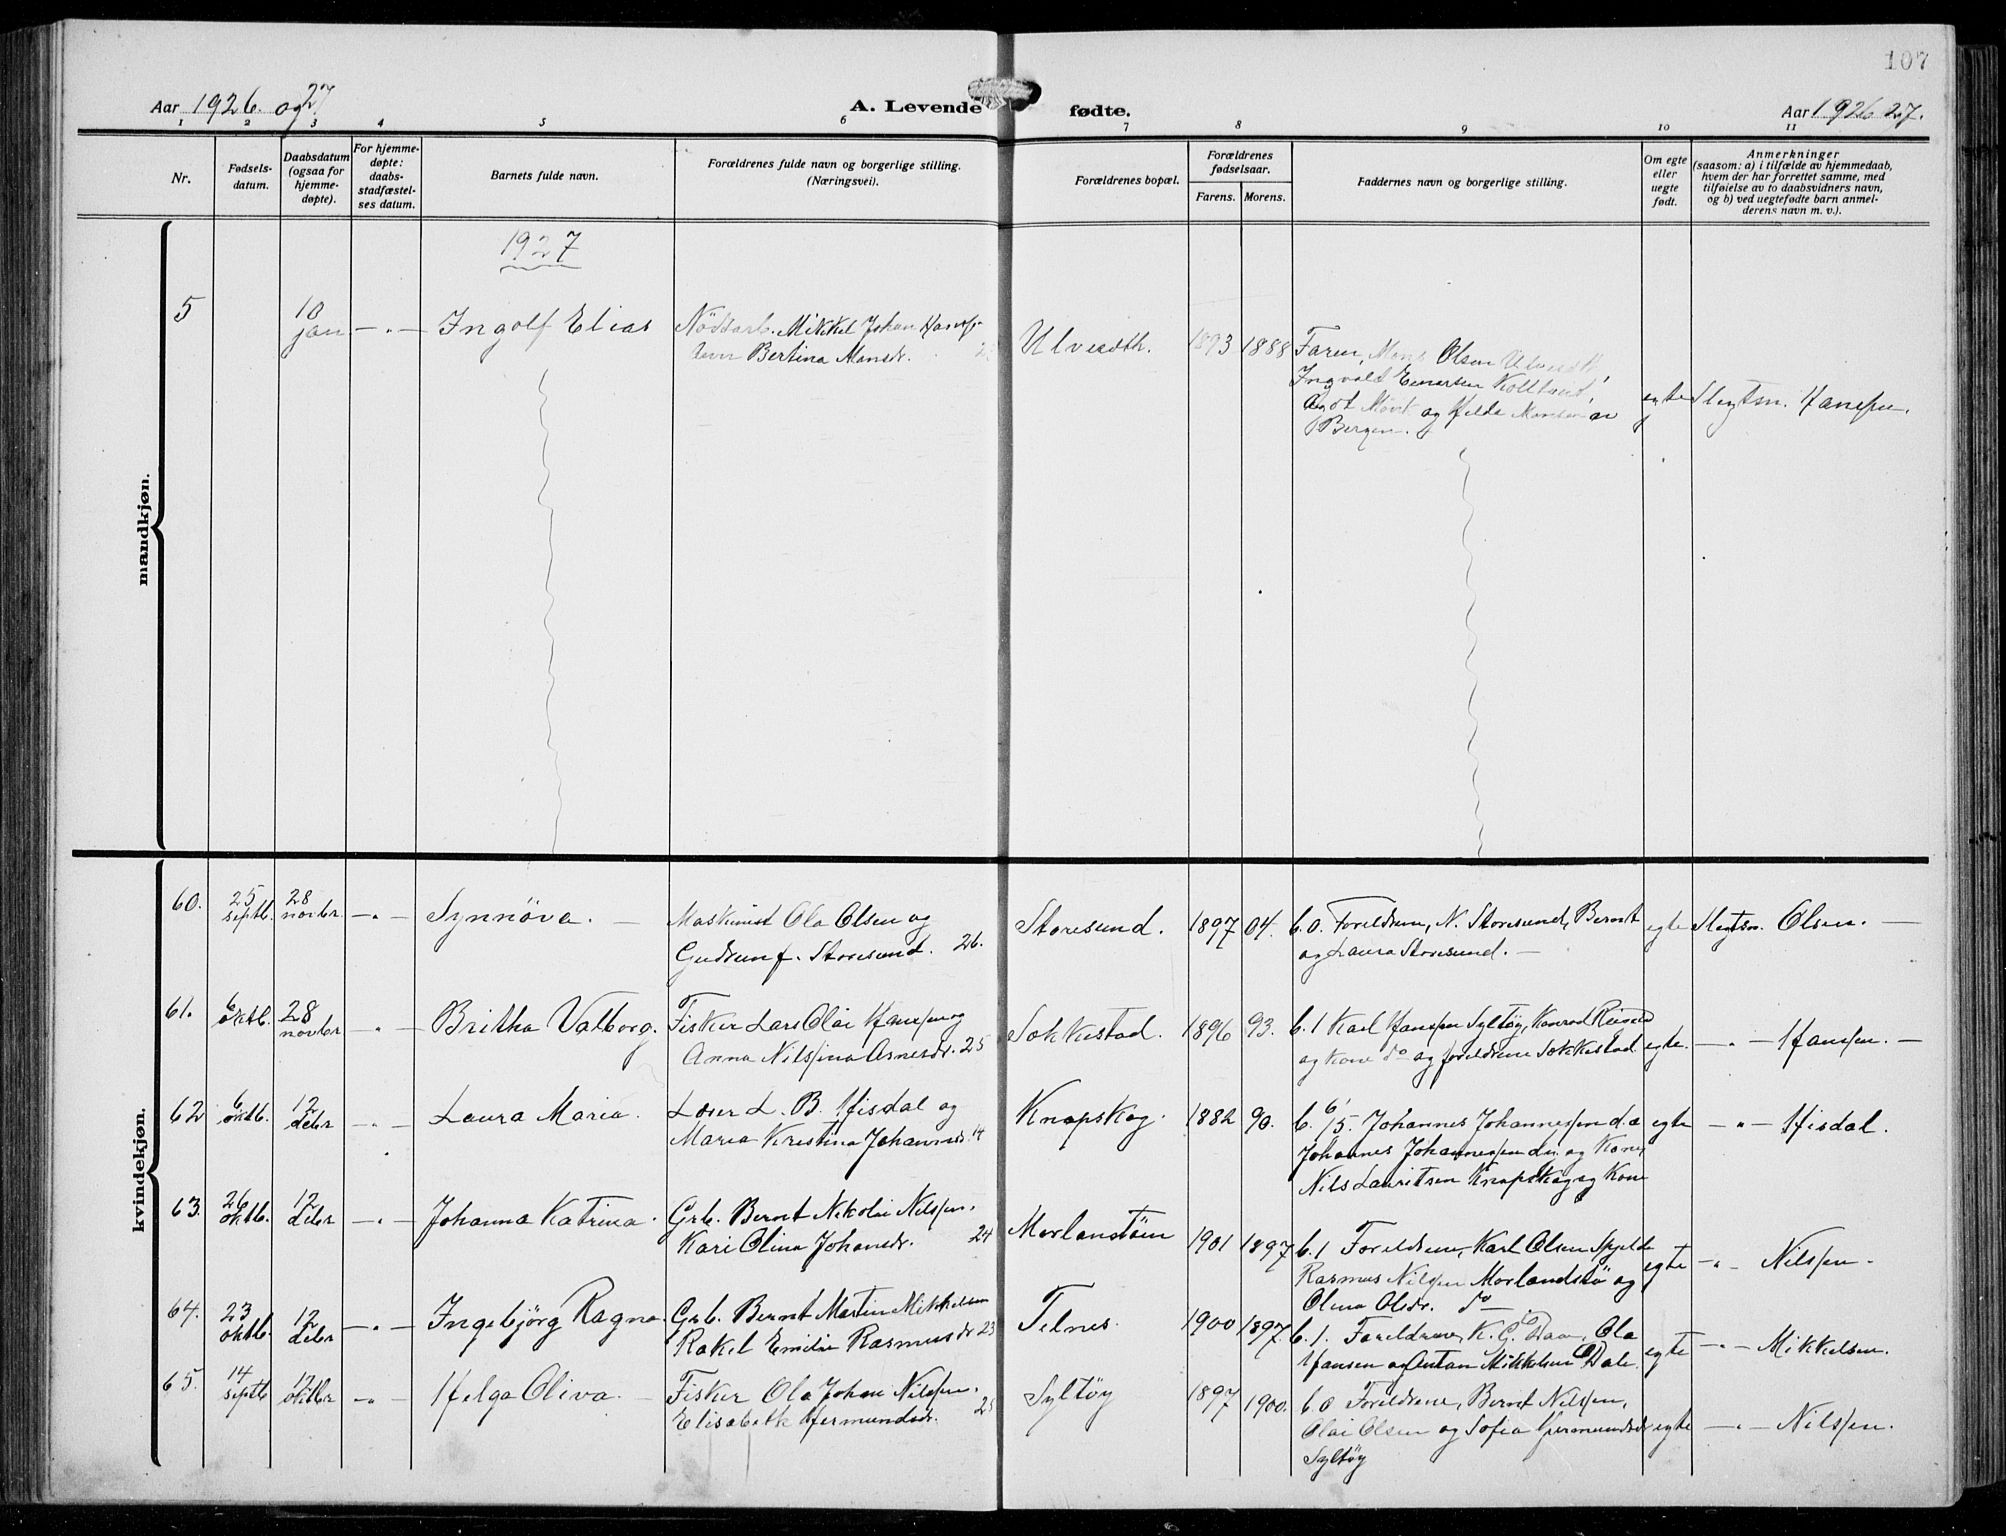 107
Aar 1926. og 27.
A. Levende fødte.
Aar 1926 27.
1 2 3 4 5 6 7 8 9 10 11
Nr.
Fødsels-
datum.
Daabsdatum
(ogsaa for
hjemme-
døpte).
For hjemme-
døpte:
daabs-
stadfæstel-
ses datum.
Barnets fulde navn.
Forældrenes fulde navn og borgerlige stilling.
(Næringsvei).
Forældrenes bopæl.
Forældrenes
fødselsaar.
Farens. Morens.
Faddernes navn og borgerlige stilling.
Om egte
eller
uegte
født.
Anmerkninger
(saasom: a) i tilfælde av hjemmedaab,
hvem der har forrettet samme, med
tilføielse av to daabsvidners navn,
og b) ved uegtefødte barn anmel-
derens navn m. v.).
mandkjøn.
1927
5
10
jan
— " —
Ingolf Elias
Mikkel Johan Hansen
Bertina Monsdr.
1893 1888
Faren, Mons Olsen
Ingvald
og Helda
Bergen.
egte
Slegtsn. Hansen.
kvindekjøn.
60.
25
septb.
28
novbr.
— " —
Synnöva. —
Maskinist Ola Olsen og
Gudrun f. Storesund. 26.
Storesund.
1897 04.
b.0. Foreldrene, N. Storesund, Bernt
og Laura Storesund. —
egte
Slegtsn. Olsen. —
61.
6
oktb.
28
novbr
— " —
Britha Valborg.
Fisker Lars Olai Hanssen og
Anna Nilssina Asnesdr. 25
Sokkestad.
1896 93.
b.1 Karl Hanssen Syltöy, Konrad
og kone do og foreldrene Sokkestad
egte.
— " — Hanssen. —
62
6
oktb.
12
debr
— " —
Laura Maria.
L. B. Hisdal og
Maria Kristina Johannesdr. 14
Knapskog.
1882 90.
b. 6/5. Johannes Johannessen d.æ
Johannes Johannessen d.y. og Kone,
Nils Lauritsen Knapskog og Kone
egte
— " — Hisdal.
63.
26
oktb.
12
debr
— " —
Johanna Katrina.
Grb. Bernt Nikolai Nilssen,
Kari Olina Johansdr. 24
Morlandstöen
1901 1897
b.1 Foreldrene, Karl Olsen Spjeld
Rasmus Nilssen Morlandstö og
Olina Olsdr. do
egte
— " — Nilssen.
64.
23
oktb.
12
debr
— " —
Ingebjörg Ragna.
Grb. Bernt Martin Mikkelsen
Rakel Emilie Rasmusdr 23
Telnes.
1900 1897.
b.1. Foreldrene, K. G. Ola
Hansen og Anton Mikkelsen Dale.
egte
— " — Mikkelsen.
65.
14
septb
12
oktbr
— " —
Helga Oliva. —
Fisker Ola Johan Nilssen,
Elisabeth Hermundsdr. 25
Syltöy
1897 1900.
b.0 Foreldrene, Bernt Nilssen,
Olai Olsen og Sofia Hermundsdr
Syltöy
egte
— " — Nilssen.